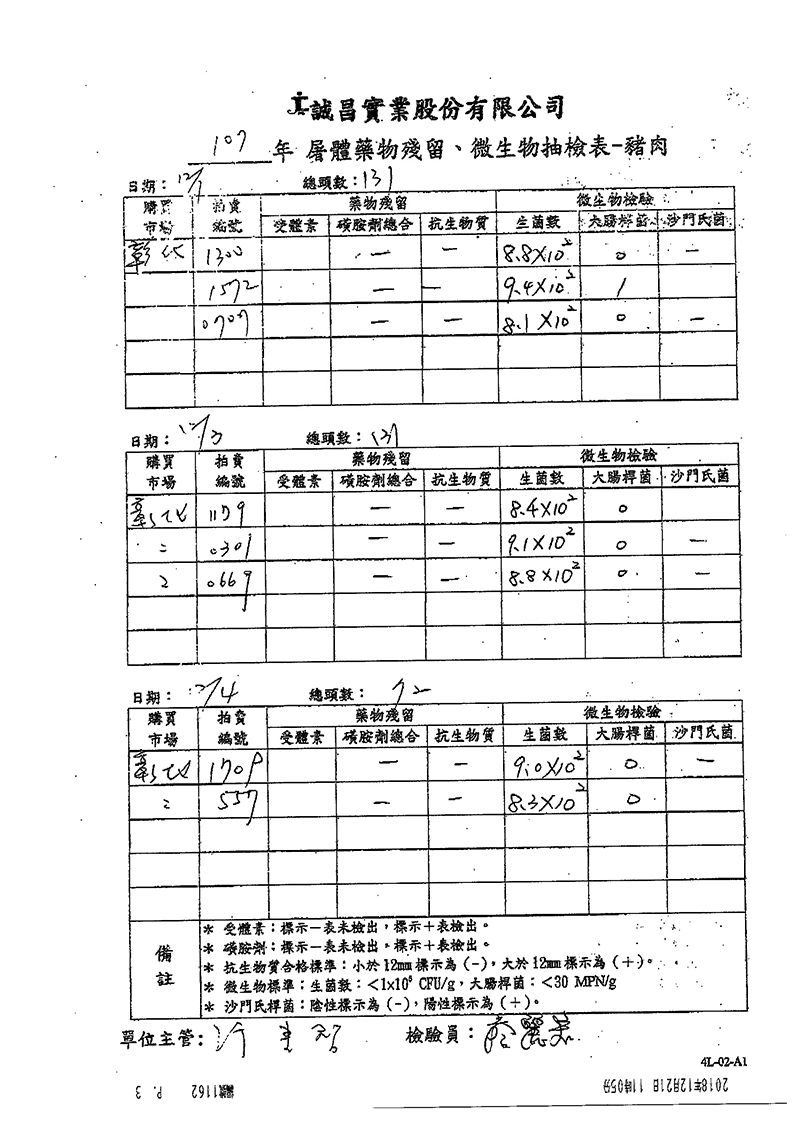 誠昌實業股份有限公司
107 年 屠體藥物殘留、微生物抽檢表-豬肉
日期: 12/1 總頭數: 131
購買市場 拍賣編號 藥物殘留 微生物檢驗
受體素 磺胺劑總合 抗生物質 生菌數 大腸桿菌 沙門氏菌
彰化 1300 — — 8.8×10² 0 —
1572 — — 9.4×10² 1
0707 — — 8.1×10² 0 —
日期: 12/3 總頭數: 131
購買市場 拍賣編號 藥物殘留 微生物檢驗
受體素 磺胺劑總合 抗生物質 生菌數 大腸桿菌 沙門氏菌
彰化 1179 — — 8.4×10² 0
〃 0301 — — 9.1×10² 0 —
〃 0669 — — 8.8×10² 0 —
日期: 12/4 總頭數: 72
購買市場 拍賣編號 藥物殘留 微生物檢驗
受體素 磺胺劑總合 抗生物質 生菌數 大腸桿菌 沙門氏菌
彰化 170 — — 9.0×10² 0 —
〃 557 — — 8.3×10² 0
備註
* 受體素:標示-表未檢出,標示+表檢出。
* 磺胺劑:標示-表未檢出,標示+表檢出。
* 抗生物質合格標準:小於12mm標示為(-),大於12mm標示為(+)。
* 微生物標準:生菌數:<1x10⁵ CFU/g,大腸桿菌:<30 MPN/g
* 沙門氏桿菌:陰性標示為(-),陽性標示為(+)。
單位主管: 檢驗員:
4L-02-A1
2018年12月21日 11時05分
1162 P. 3